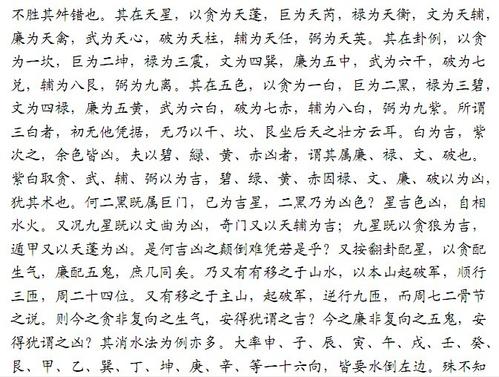 不胜其舛错也。其在天星，以贪为天蓬，巨为天芮，禄为天衡，文为天辅，
廉为天禽，武为天心，破为天柱，辅为天任，弼为天英。其在卦例，以贪
为一坎，巨为二坤，禄为三震，文为四巽，廉为五中，武为六干，破为七
兑，辅为八艮，弼为九离。其在五色，以贪为一白，巨为二黑，禄为三碧，
文为四禄，廉为五黄，武为六白，破为七赤，辅为八白，弼为九紫。所谓
三白者，初无他凭据，无乃以干、坎、艮坐后天之壮方云耳。白为吉，紫
次之，余色皆凶。夫以碧、緑、黄、赤凶者，谓其属廉、禄、文、破也。
紫白取贪、武、辅、弼以为吉，碧、绿、黄、赤因禄、文、廉、破以为凶，
犹其术也。何二黑既属巨门，已为吉星，二黑乃为凶色？星吉色凶，自相
水火。又况九星既以文曲为凶，奇门又以天辅为吉；九星既以贪狼为吉，
遁甲又以天蓬为凶。是何吉凶之颠倒难凭若是乎？又按翻卦配星，以贪配
生气，廉配五鬼，庶几同矣。乃又有有移之于山水，以本山起破军，顺行
三匝，周二十四位。又有移之于主山，起破军，逆行九匝，而周七二骨节
之说。则今之贪非复向之生气，安得犹谓之吉？今之廉非复向之五鬼，安
得犹谓之凶？其消水法为例亦多。大率申、子、辰、寅、午、戌、壬、癸、
艮、甲、乙、巽、丁、坤、庚、辛、等一十六向，皆要水倒左边。殊不知